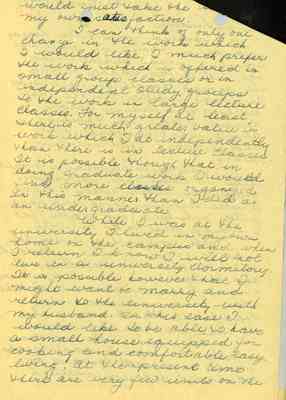 would just take the
my own satisfaction.
I can think of only one
change in the work which
I would like. I much prefer
the work which is offered in
small group classes or in
independent study groups
to the work in large lecture
classes. For myself at least,
there is much greater value in
work which I do independently
than there is in lecture classes.
It is possible though that in
doing graduate work I would
find more classes organized
in this manner than I did as
an undergraduate.
While I was at the
university I lived in my own
home on the campus and when
I return I know I will not
live in a university dormitory.
It is possible however that I
might want to marry and
return to the university with
my husband. In this case I
would like to be able to have
a small house equipped for
cooking and comfortable easy
living. At the present time
there are very few units on the